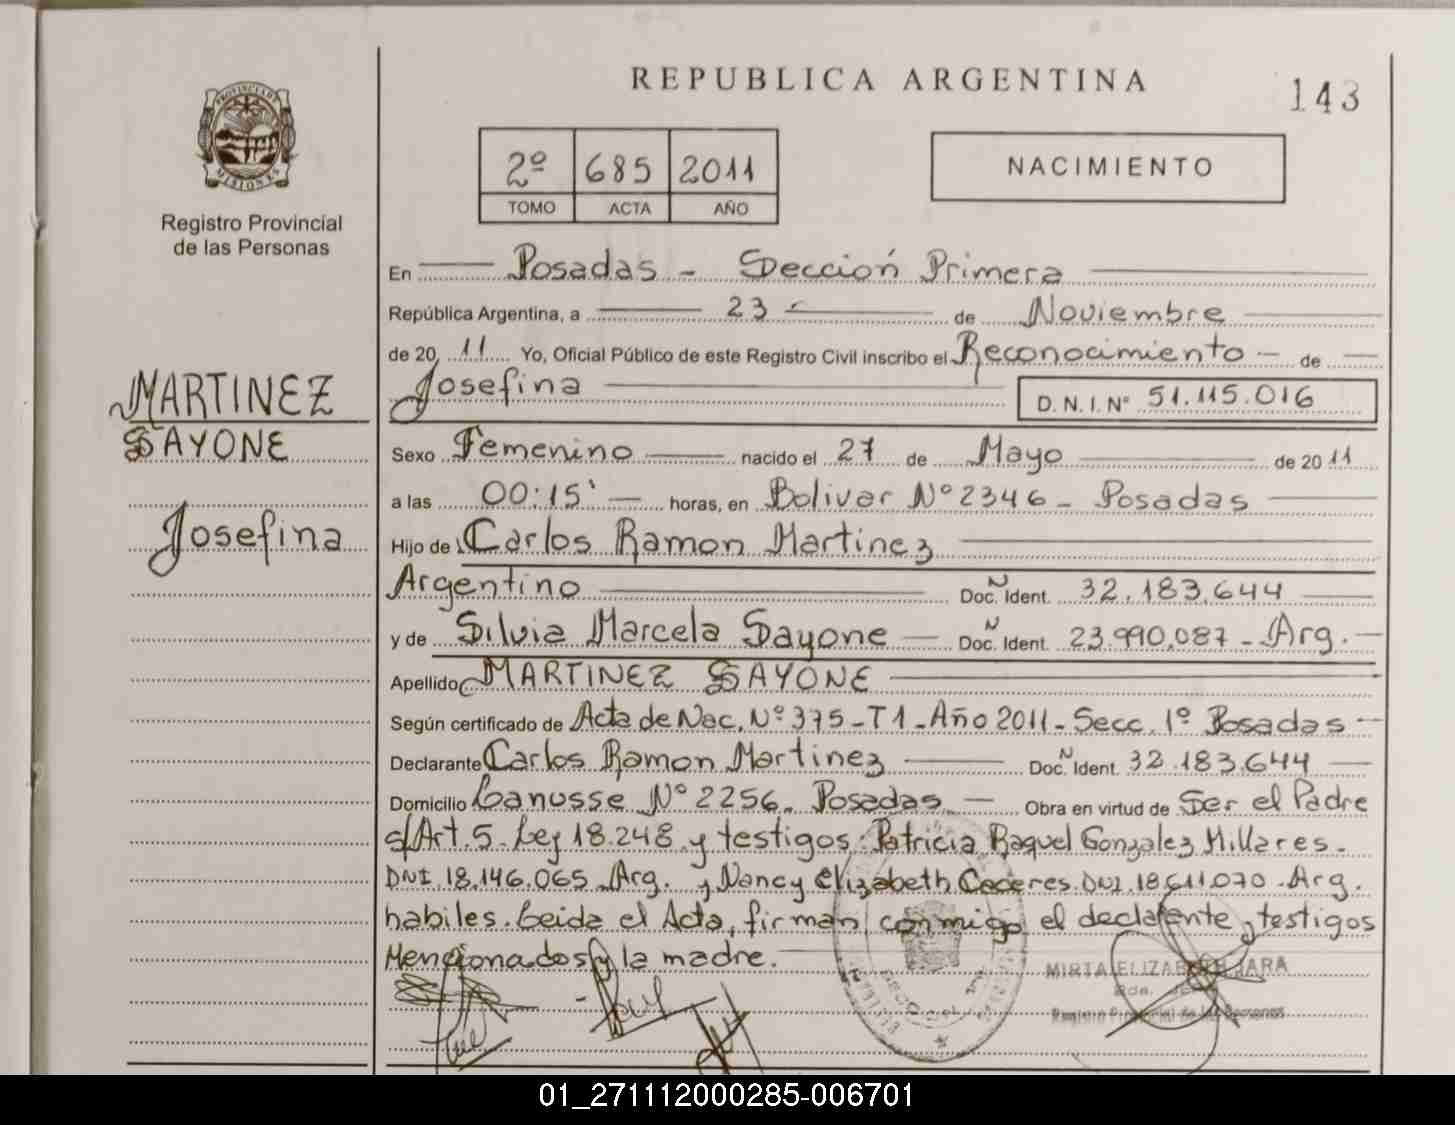 REPUBLICA ARGENTINA
143
PROVINCIA DE
MISIONES
Registro Provincial
de las Personas
2º 685 2011
TOMO ACTA AÑO
NACIMIENTO
MARTINEZ
SAYONE
Josefina
En Posadas - Sección Primera
República Argentina, a 23 de Noviembre
de 2011 Yo, Oficial Público de este Registro Civil inscribo el Reconocimiento - de
Josefina D.N.I. Nº 51.115.016
Sexo Femenino nacido el 27 de Mayo de 2011
a las 00:15' horas, en Bolivar Nº 2346 - Posadas
Hijo de Carlos Ramon Martinez
Argentino Doc. Ident. N 32.183.644
y de Silvia Marcela Sayone Doc. Ident. N 23.990.087 - Arg.
Apellido MARTINEZ SAYONE
Según certificado de Acta de Nac. Nº 375 - T1 - Año 2011 - Secc. 1º Posadas
Declarante Carlos Ramon Martinez Doc. Ident. N 32.183.644
Domicilio Lanusse Nº 2256. Posadas Obra en virtud de Ser el Padre
s/Art. 5. Ley 18.248 y testigos: Patricia Raquel Gonzalez Millares.
DNI. 18.146.065. Arg. y Nancy Elizabeth Caceres. DNI. 18.611.070. Arg.
habiles. Leida el Acta, firman conmigo el declarante, testigos
Mencionados y la madre.
MIRTA ELIZABETH JARA
Registro Provincial de las Personas
01_271112000285-006701